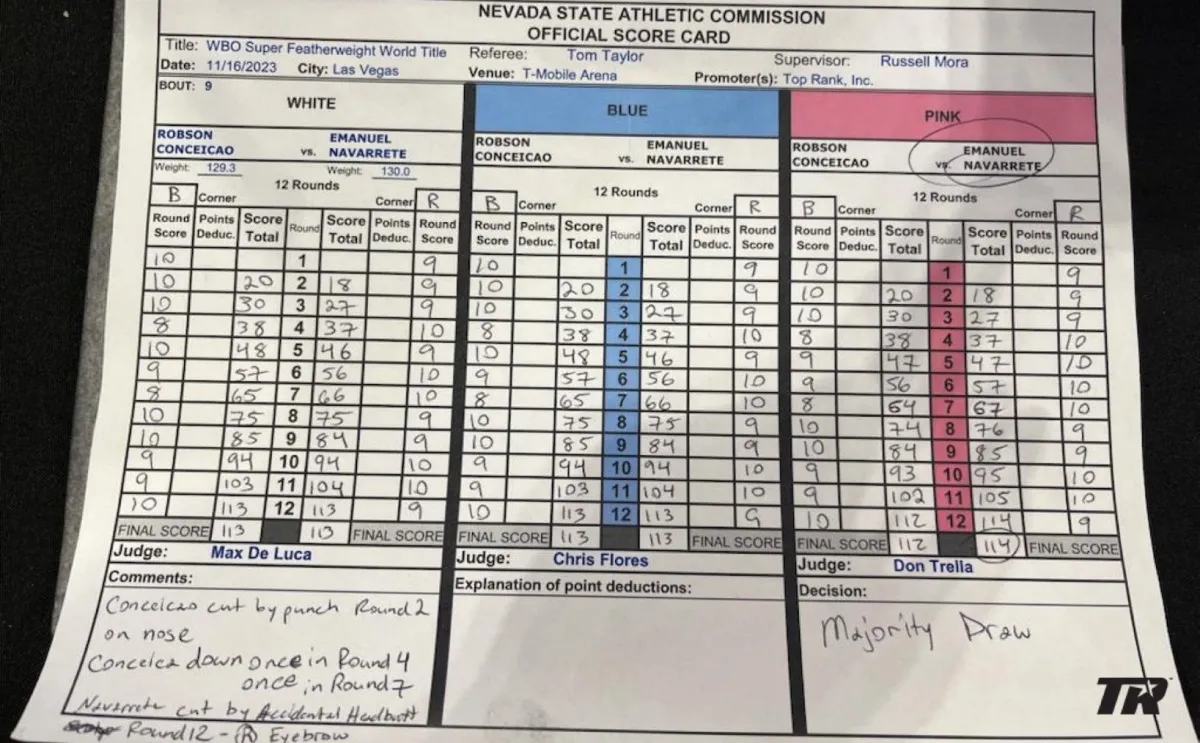 NEVADA STATE ATHLETIC COMMISSION
OFFICIAL SCORE CARD
Title: WBO Super Featherweight World Title Referee: Tom Taylor Supervisor: Russell Mora
Date: 11/16/2023 City: Las Vegas Venue: T-Mobile Arena Promoter(s): Top Rank, Inc.
BOUT: 9
WHITE BLUE PINK
ROBSON CONCEICAO vs. EMANUEL NAVARRETE ROBSON CONCEICAO vs. EMANUEL NAVARRETE ROBSON CONCEICAO vs. EMANUEL NAVARRETE
Weight: 129.3 Weight: 130.0
12 Rounds 12 Rounds 12 Rounds
B Corner Corner R B Corner Corner R B Corner Corner R
Round Score Points Deduc. Score Total Round Score Total Points Deduc. Round Score Round Score Points Deduc. Score Total Round Score Total Points Deduc. Round Score Round Score Points Deduc. Score Total Round Score Total Points Deduc. Round Score
10 1 9 10 1 9 10 1 9
10 20 2 18 9 10 20 2 18 9 10 20 2 18 9
10 30 3 27 9 10 30 3 27 9 10 30 3 27 9
8 38 4 37 10 8 38 4 37 10 8 38 4 37 10
10 48 5 46 9 10 48 5 46 9 9 47 5 47 10
9 57 6 56 10 9 57 6 56 10 9 56 6 57 10
8 65 7 66 10 8 65 7 66 10 8 64 7 67 10
10 75 8 75 9 10 75 8 75 9 10 74 8 76 9
10 85 9 84 9 10 85 9 84 9 10 84 9 85 9
9 94 10 94 10 9 94 10 94 10 9 93 10 95 10
9 103 11 104 10 9 103 11 104 10 9 102 11 105 10
10 113 12 113 9 10 113 12 113 9 10 112 12 114 9
FINAL SCORE 113 113 FINAL SCORE FINAL SCORE 113 113 FINAL SCORE FINAL SCORE 112 114 FINAL SCORE
Judge: Max De Luca Judge: Chris Flores Judge: Don Trella
Comments: Explanation of point deductions: Decision:
Conceicao cut by punch Round 2
on nose
Conceica down once in Round 4
once in Round 7
Navarrete cut by Accidental Headbutt
Round 12 - R Eyebrow
Majority Draw
TR